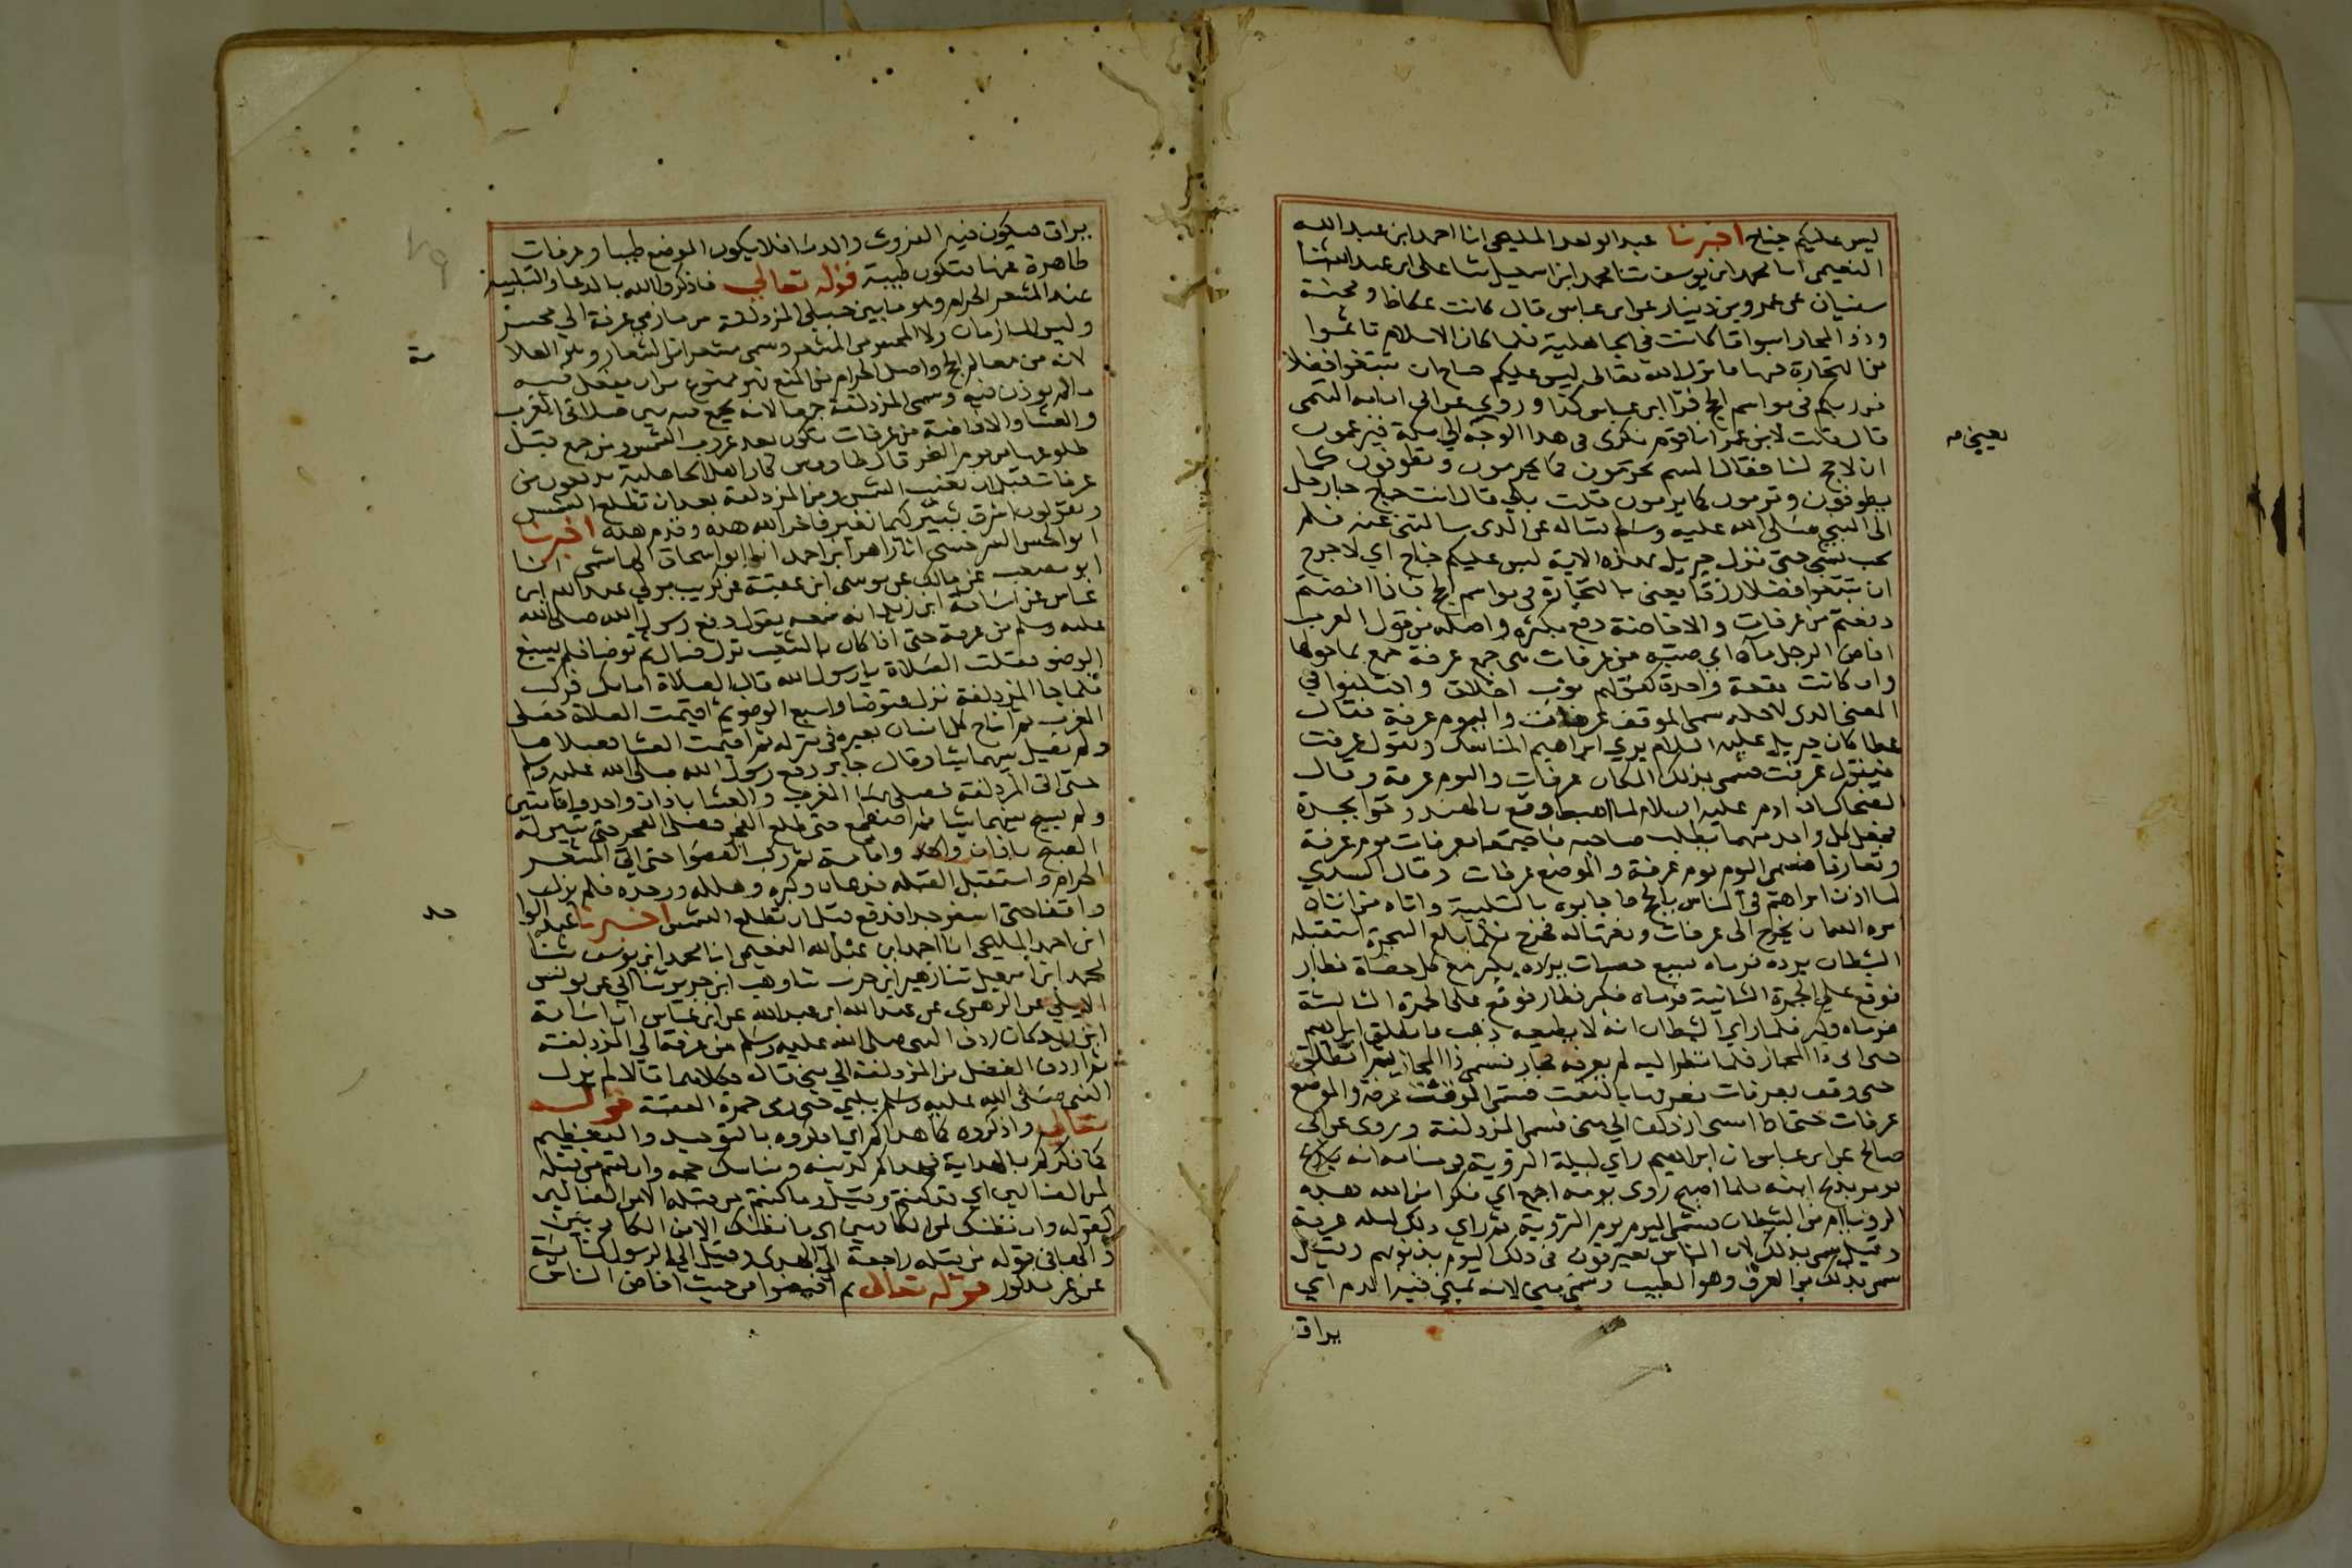 ليس عليكم جناح اخبرنا عبد الواحد المليحي انا احمد ابن عبد الله
النعيمي انا محمد ابن يوسف ثنا محمد ابن اسمعيل ثنا علي ابن عبد الله ثنا
سفيان عن عمرو بن دينار عن ابن عباس قال كانت عكاظ ومجنة
وذو المجاز اسواقا كانت في الجاهلية فلما كان الاسلام تاثموا
من التجارة فيها فانزل الله تعالى ليس عليكم جناح ان تبتغوا فضلا
من ربكم في مواسم الحج قرا ابن عباس كذا وروي عن ابي امامه التيمي
قال قلت لابن عمر انا قوم نكري في هذا الوجه الي مكة فيزعمون
ان لا حج لنا فقال الستم تحرمون كما يحرمون وتطوفون كما
يطوفون وترمون كما يرمون قلت بلي قال انت حاج جا رجل
الى النبي صلى الله عليه وسلم يساله عن الذي سالتني عنه فلم
يجب بشي حتى نزل جبريل بهذه الاية ليس عليكم جناح اي لا حرج
ان تبتغوا فضلا رزقا يعني بالتجارة في مواسم الحج فاذا افضتم
دفعتم من عرفات والافاضة دفع بكثرة واصله من قول العرب
افاض الرجل ماه اي صبه من عرفات هي جمع عرفة جمع بما حولها
وان كانت بقعة واحدة كقولهم ثوب اخلاق واختلفوا في
المعنى الذي لاجله سمي الموقف عرفات واليوم عرفة فقال
عطا كان جبريل عليه السلام يري ابراهيم المناسك ويقول عرفت
فيقول عرفت فسمي بذلك المكان عرفات واليوم عرفة وقال
الضحاك ان ادم عليه السلام لما اهبط وقع بالهند وحوا بجدة
فجعل كل واحد منهما يطلب صاحبه فاجتمعا بعرفات يوم عرفة
وتعارفا فسمي اليوم يوم عرفة والموضع عرفات وقال السدي
لما اذن ابراهيم في الناس بالحج فاجابوه بالتلبية واتاه من اتاه
امره الله ان يخرج الى عرفات ونعتها له فخرج فلما بلغ الشجرة استقبله
الشيطان يرده فرماه بسبع حصيات يكبر مع كل حصاة فطار
فوقع على الجمرة الثانية فرماه فكبر فطار فوقع على الجمرة الثالثة
فرماه وكبر فلما راي الشيطان انه لا يطيعه ذهب فانطلق ابراهيم
حتى اتى ذا المجاز فلما نظر اليه لم يعرفه فجاز فسمي ذا المجاز ثم انطلق
حتى وقف بعرفات فعرفها بالنعت فسمي الوقت عرفة والموضع
عرفات حتى اذا امسى ازدلف الي جمع فسمي المزدلفة وروي عن ابي
صالح عن ابن عباس ان ابراهيم راي ليلة التروية في منامه انه
يومر بذبح ابنه فلما اصبح روى يومه اجمع اي فكر امن الله هذه
الرويا ام من الشيطان فسمي اليوم يوم التروية ثم راي ذلك ليلة عرفة
وقيل سمي بذلك لان الناس يعترفون في ذلك اليوم بذنوبهم وقيل
سمي بذلك من العرف وهو الطيب وسمي منى لانه يمنى فيه الدم اي
يراق
يعني مه
يراق فيكون فيه الفروث والدما فلا يكون الموضع طيبا وعرفات
طاهرة عنها فتكون طيبة قوله تعالى فاذكروا الله بالدعا والتلبية
عند المشعر الحرام وهو ما بين جبلي المزدلفة من مازمي عرفة الي محسر
وليس المازمان ولا المحسر من المشعر وسمي مشعرا من الشعار وهي العلا
لانه من معالم الحج واصل الحرام من المنع فهو ممنوع من ان يفعل فيه
ما لم يوذن فيه وسمي المزدلفة جمعا لانه يجمع فيه بين صلاتي المغرب
والعشا والافاضة من عرفات تكون بعد غروب الشمس ومن جمع قبل
طلوعها من يوم النحر قال طاووس كان اهل الجاهلية يدفعون من
عرفات قبل ان تغيب الشمس ومن المزدلفة بعد ان تطلع الشمس
ويقولون اشرق ثبير كيما نغير فاخر الله هذه وقدم هذه اخبرنا
ابو الحسن السرخسي انا زاهر ابن احمد انا ابو اسحاق الهاشمي انا
ابو مصعب عن مالك عن موسى ابن عقبة عن كريب مولي عبد الله ابن
عباس عن اسامة ابن زيد انه سمعه يقول دفع رسول الله صلى الله
عليه وسلم من عرفة حتى اذا كان بالشعب نزل فبال ثم توضا فلم يسبغ
الوضو فقلت الصلاة يا رسول الله قال الصلاة امامك فركب
فلما جا المزدلفة نزل فتوضا واسبغ الوضو ثم اقيمت الصلاة فصلى
المغرب ثم اناخ كل انسان بعيره في منزله ثم اقيمت العشا فصلاها
ولم يصل بينهما شيا وقال جابر دفع رسول الله صلى الله عليه وسلم
حتى اتى المزدلفة فصلى بها المغرب والعشا باذان واحد واقامتين
ولم يسبح بينهما شيا ثم اضطجع حتى طلع الفجر فصلى الفجر حتى تبين له
الصبح باذان واحد واقامة ثم ركب القصوا حتى اتى المشعر
الحرام واستقبل القبلة فدعاه وكبره وهلله ووحده فلم يزل
واقفا حتى اسفر جدا فدفع قبل ان تطلع الشمس اخبرنا عبد الوا
ابن احمد المليحي انا احمد ابن عبد الله النعيمي انا محمد ابن يوسف ثنا
محمد ابن اسمعيل ثنا زهير ابن حرب ثنا وهب ابن جرير ثنا ابي عن يونس
الايلي عن الزهري عن عبيد الله ابن عبد الله عن ابن عباس ان اسامة
ابن زيد كان ردف النبي صلى الله عليه وسلم من عرفة الي المزدلفة
ثم اردف الفضل من المزدلفة الي منى قال فكلاهما قالا لم يزل
النبي صلى الله عليه وسلم يلبي حتى رمى جمرة العقبة قوله
تعالى واذكروه كما هداكم اي اذكروه بالتوحيد والتعظيم
كما ذكركم بالهداية فهداكم لدينه ومناسك حجه وان كنتم من قبله
لمن الضالين اي وقد كنتم وقيل وما كنتم من قبله الا من الضالين
كقوله وان نظنك لمن الكاذبين اي ما نظنك الا من الكاذبين
والها في قوله من قبله راجعة الى الهدى وقيل الى الرسول كناية
عن غير مذكور قوله تعالى ثم افيضوا من حيث افاض الناس
مة
حد